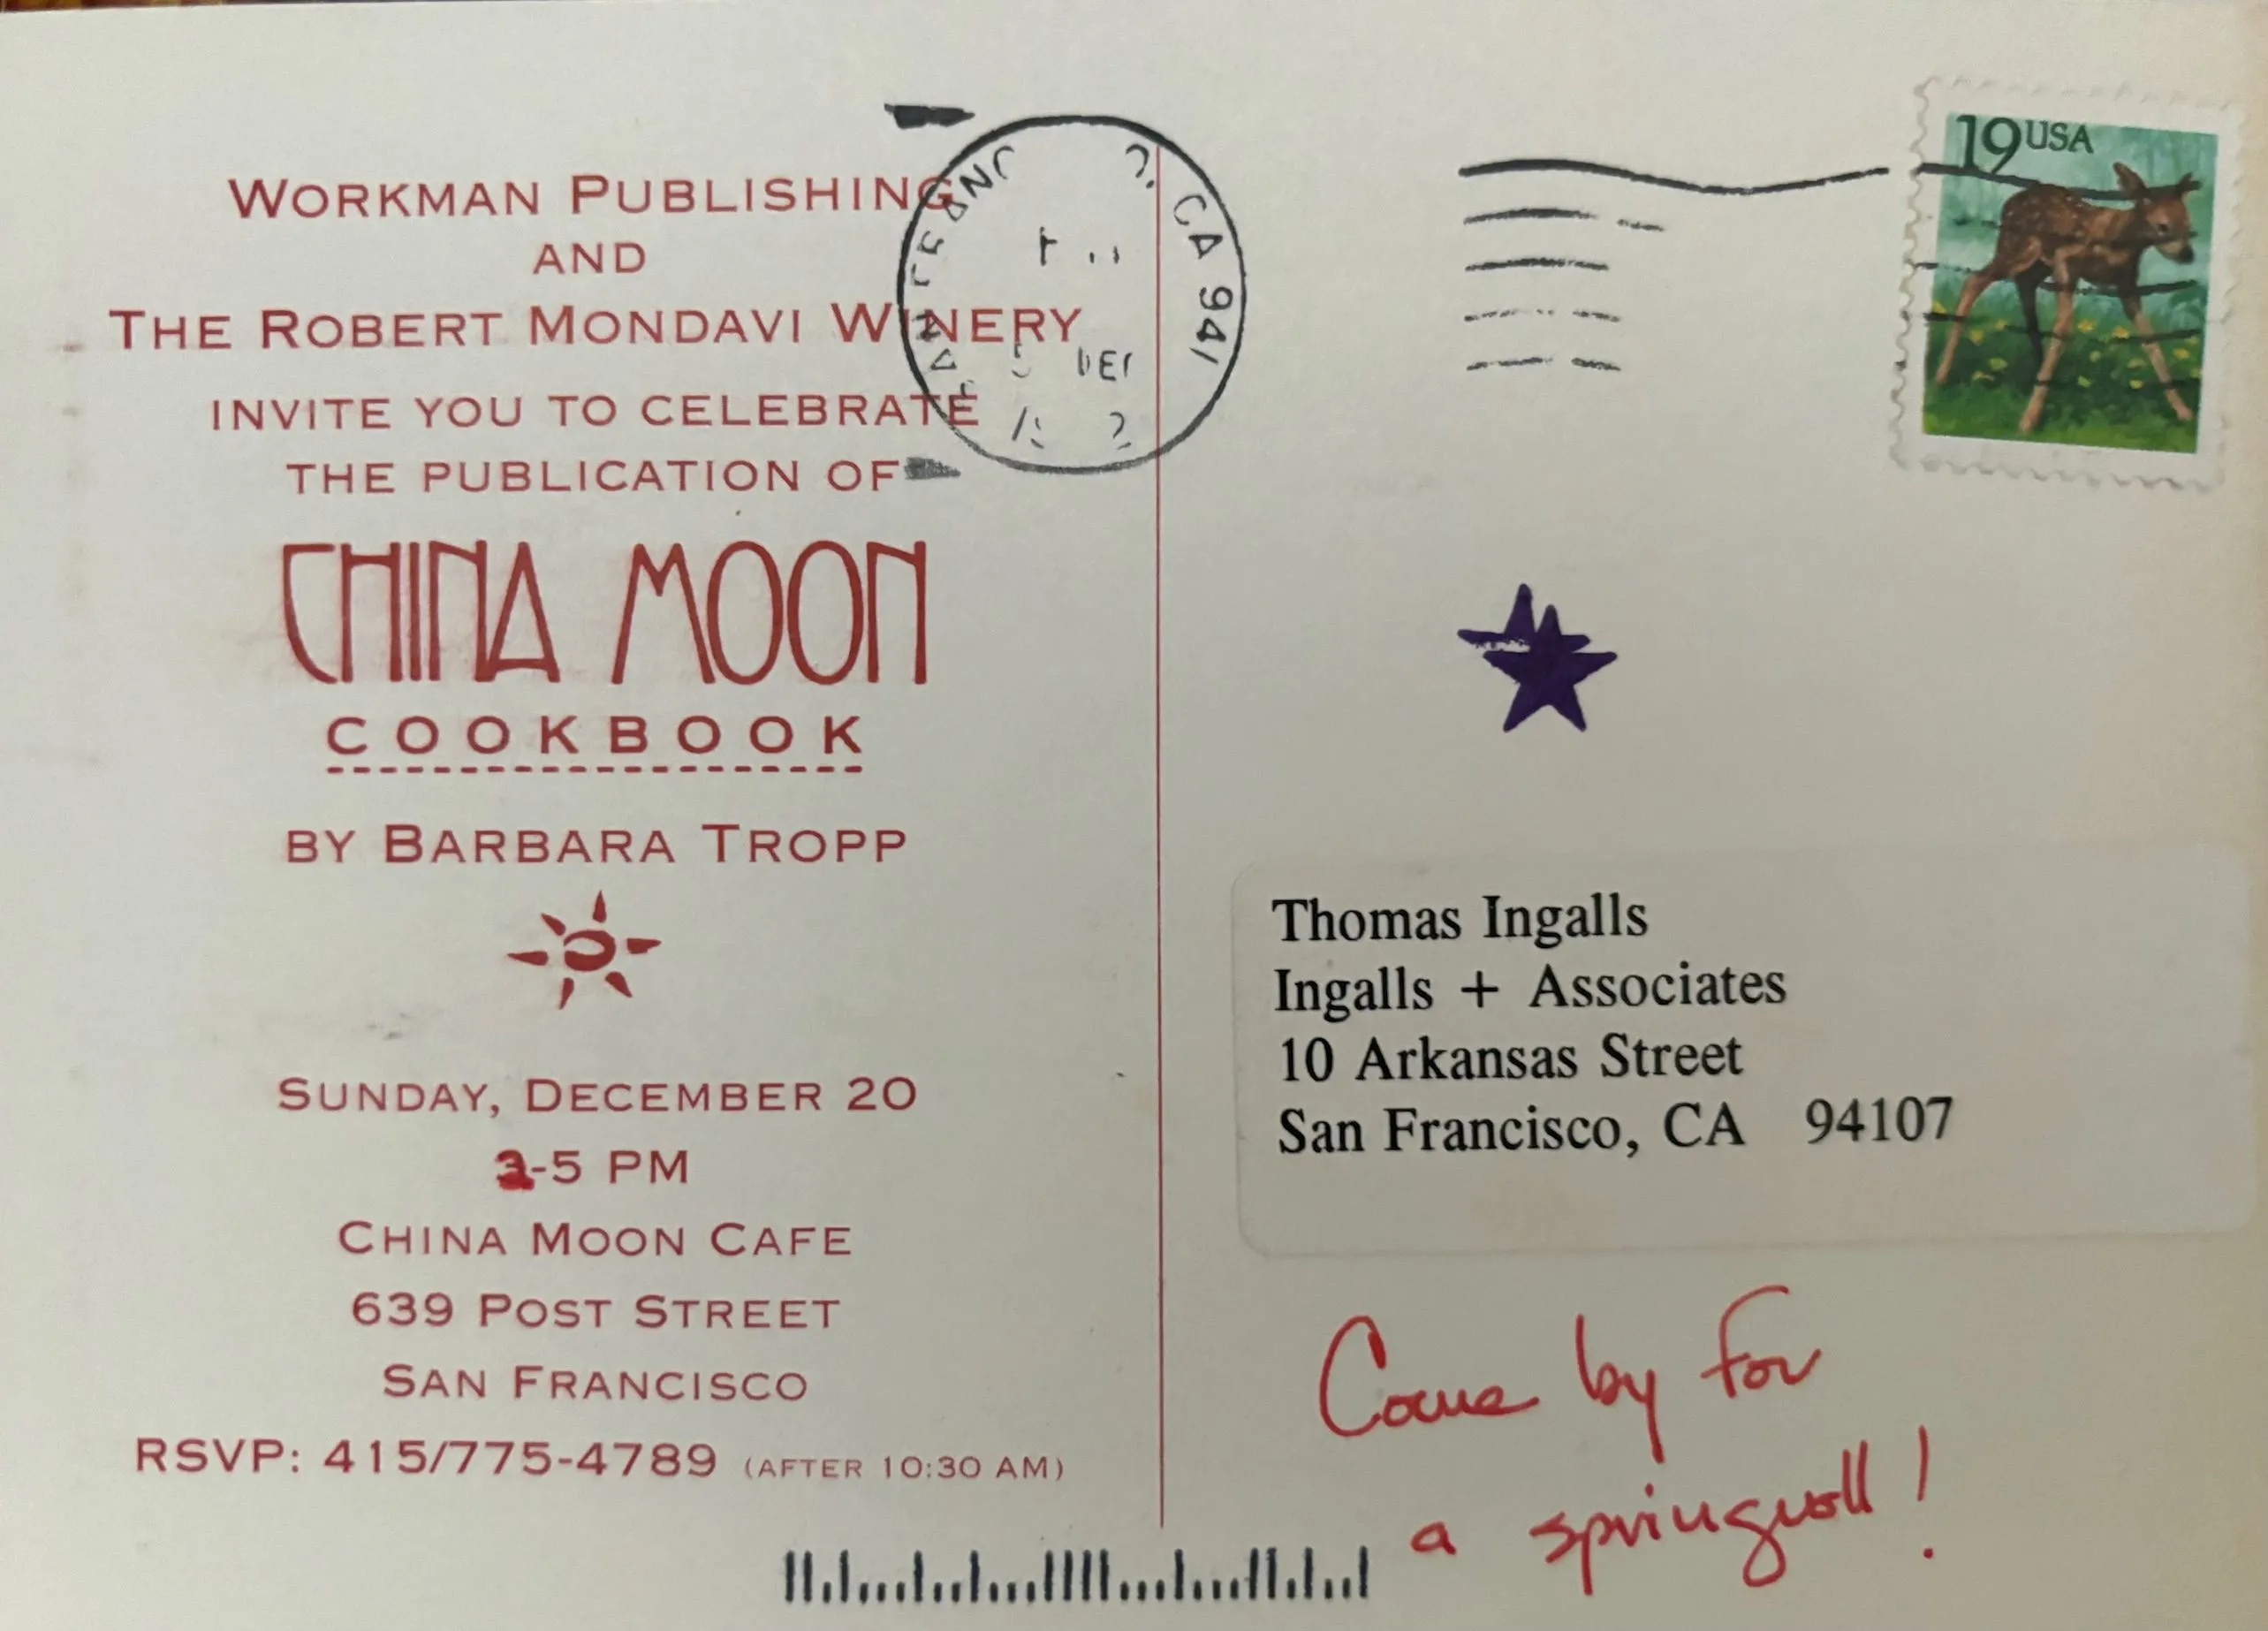 WORKMAN PUBLISHING
AND
THE ROBERT MONDAVI WINERY
INVITE YOU TO CELEBRATE
THE PUBLICATION OF
CHINA MOON
COOKBOOK
BY BARBARA TROPP
SUNDAY, DECEMBER 20
-5 PM
CHINA MOON CAFE
639 POST STREET
SAN FRANCISCO
RSVP: 415/775-4789 (AFTER 10:30 AM)
CA 941
19 USA
Thomas Ingalls
Ingalls + Associates
10 Arkansas Street
San Francisco, CA 94107
Come by for
a springroll!